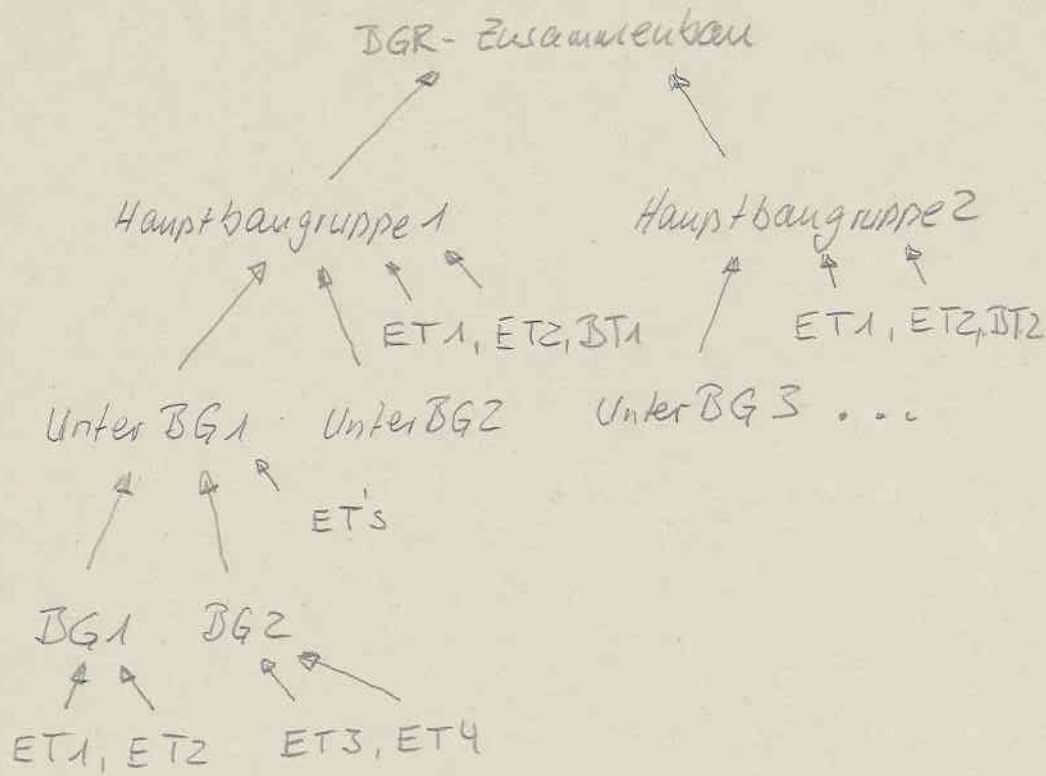 BGR-Zusammenbau
Hauptbaugruppe1 Hauptbaugruppe2
ET1, ET2, BT1 ET1, ET2, BT2
UnterBG1 UnterBG2 UnterBG3 ...
ET's
BG1 BG2
ET1, ET2 ET3, ET4